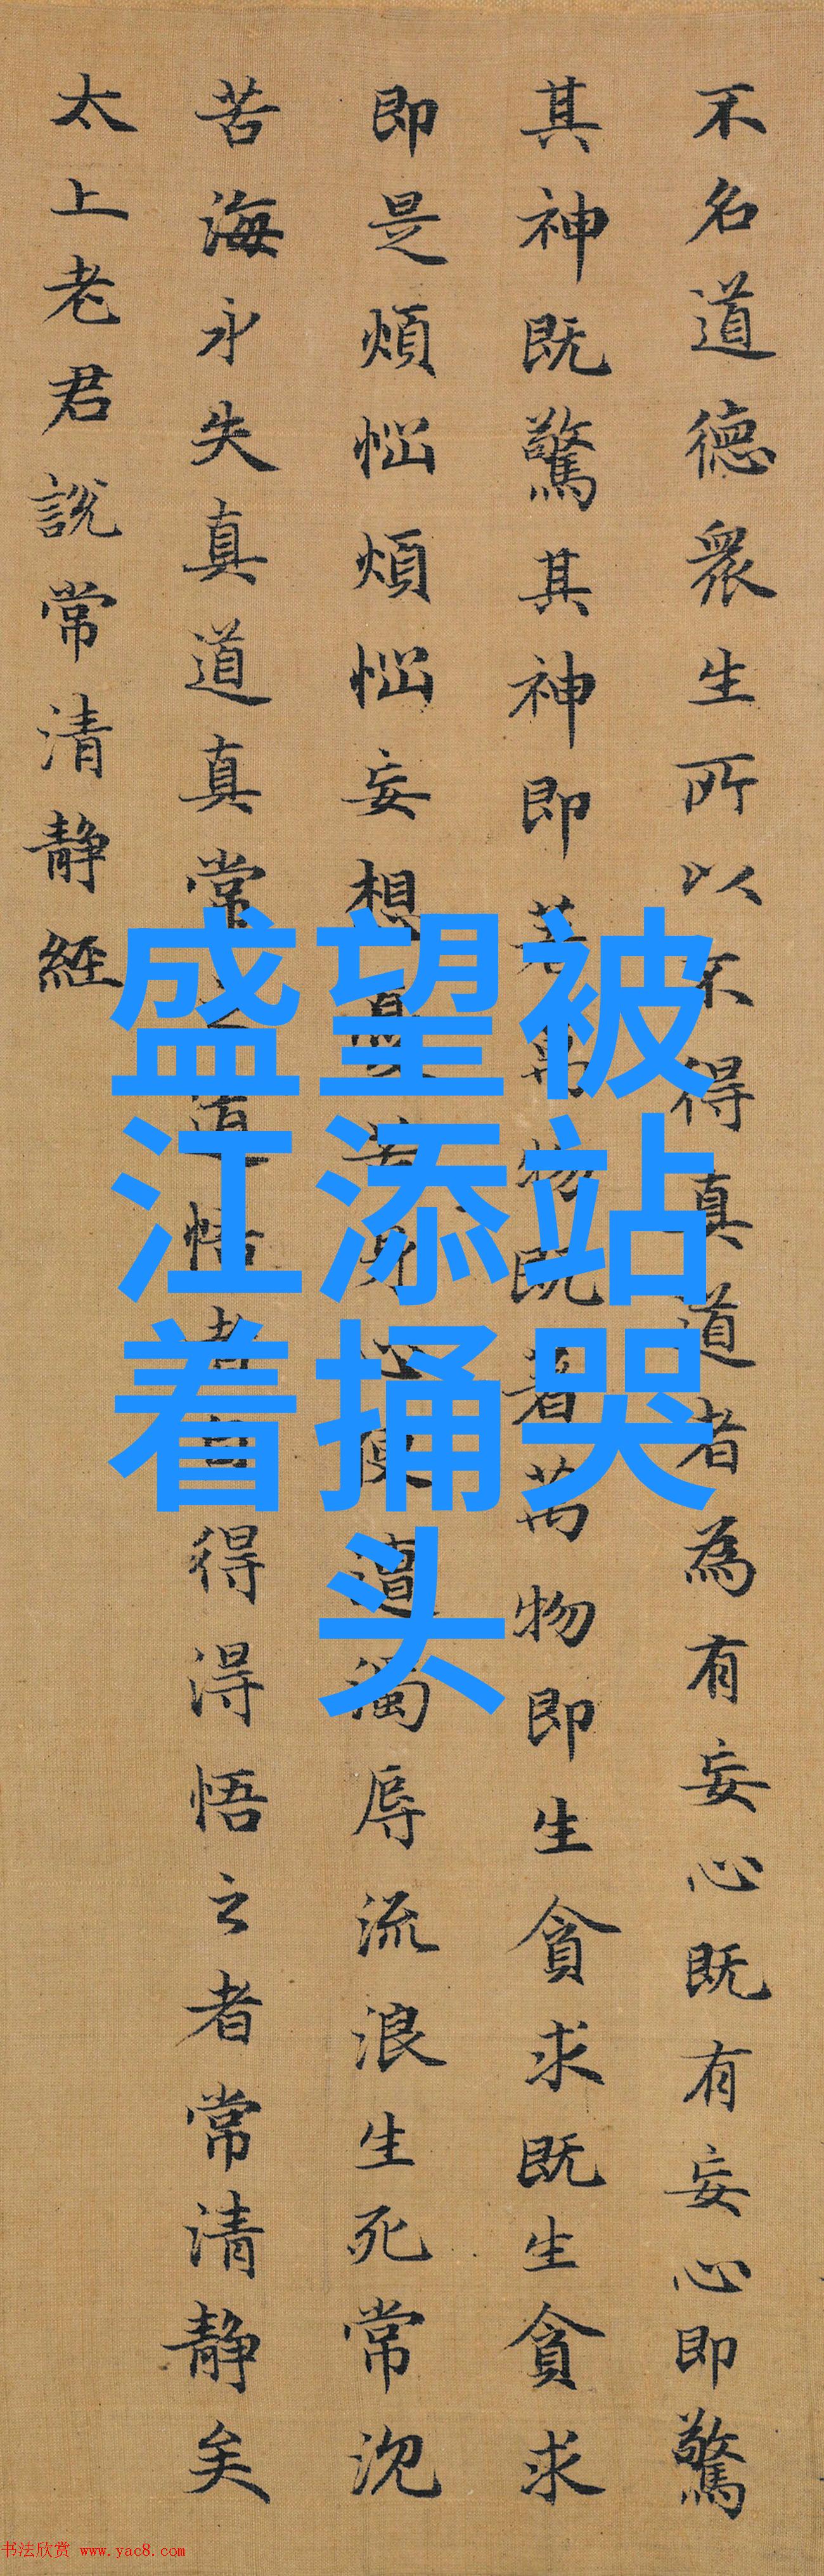 不名道德衆生所以不得真道者為有妄心既有妄心即驚
其神既驚其神即著萬物既著萬物即生貪求既生貪求
即是煩惱煩惱妄想憂苦身心便遭濁辱流浪生死常沉
苦海永失真道真常之道悟者自得淂悟之者常清靜矣
太上老君說常清靜經
盛望被
江添站
着捅哭
头
书法欣赏 www.yac8.com